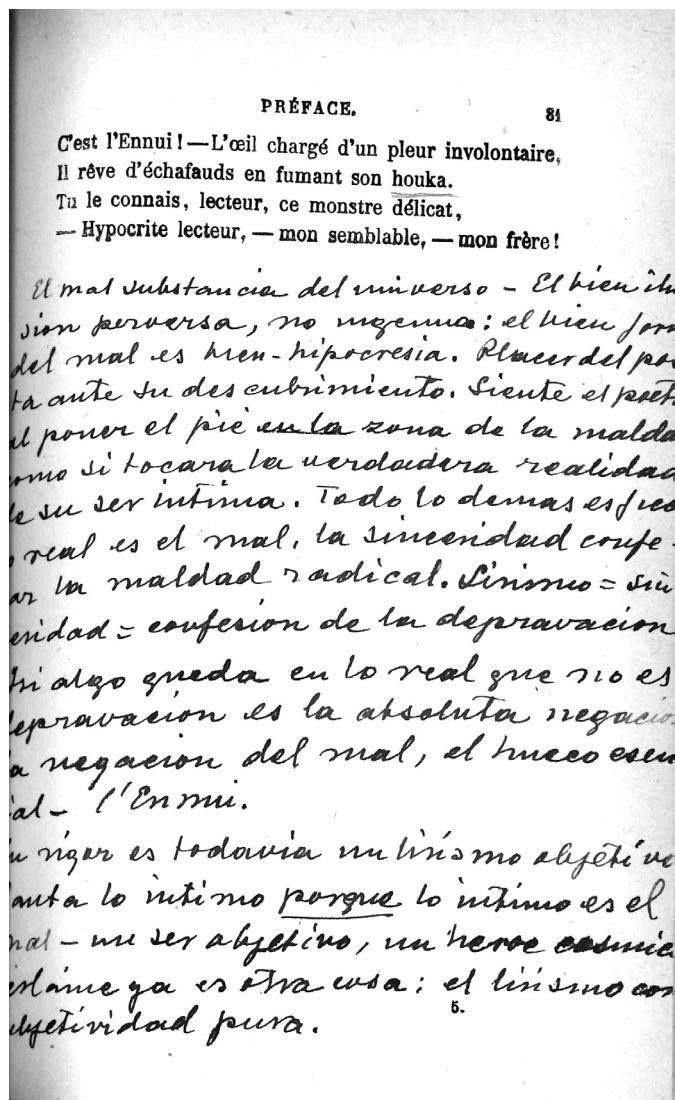 PRÉFACE. 81
C'est l'Ennui! — L'œil chargé d'un pleur involontaire,
Il rêve d'échafauds en fumant son houka.
Tu le connais, lecteur, ce monstre délicat,
— Hypocrite lecteur, — mon semblable, — mon frère!
El mal substancia del universo – El bien ilu
sion perversa, no ingenua: el bien for
del mal es bien-hipocresia. Placer del poe
ta ante su descubrimiento. Siente el poet
al poner el pie en la zona de la malda
omo si tocara la verdadera realidad
de su ser intima. Todo lo demas es
o real es el mal, la sinceridad confe-
ar la maldad radical. Lirismo = sin
eridad = confesion de la depravacion
Si algo queda en lo real que no es
depravacion es la absoluta negacio
a negacion del mal, el hueco esen
ial – l'Ennui.
n rigor es todavia un lirismo objetivo
anta lo intimo porque lo intimo es el
mal – un ser objetivo, un heroe cosmic
ya es otra cosa: el lirismo con
objetividad pura.
5.